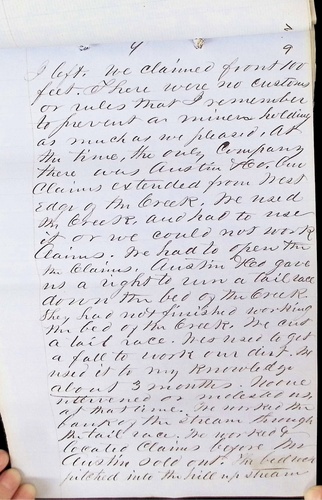 4
9
I left. We claimed front 100
feet. There were no customs
or rules that I remember
to prevent as miners holding
as much as we pleased. At
the time, the only Company
there was Austin & Co. Our
Claims extended from West
Edge of the Creek. We used
the Creek, and had to use
it or we could not work
Claims. We had to open the
the Claims. Austin & Co gave
us a right to run a tail race
down the bed of the Creek.
They had not finished working
the bed of the Creek. We cut
a tail race. We used to get
a fall to work our dirt. We
used it to my knowledge
about 3 months. No one
intervened or molested us
at that time. We worked the
bank of the stream through
the tail race. We worked &
located Claims before the
Austin sold out. The bed rock
pitched into the hill up stream